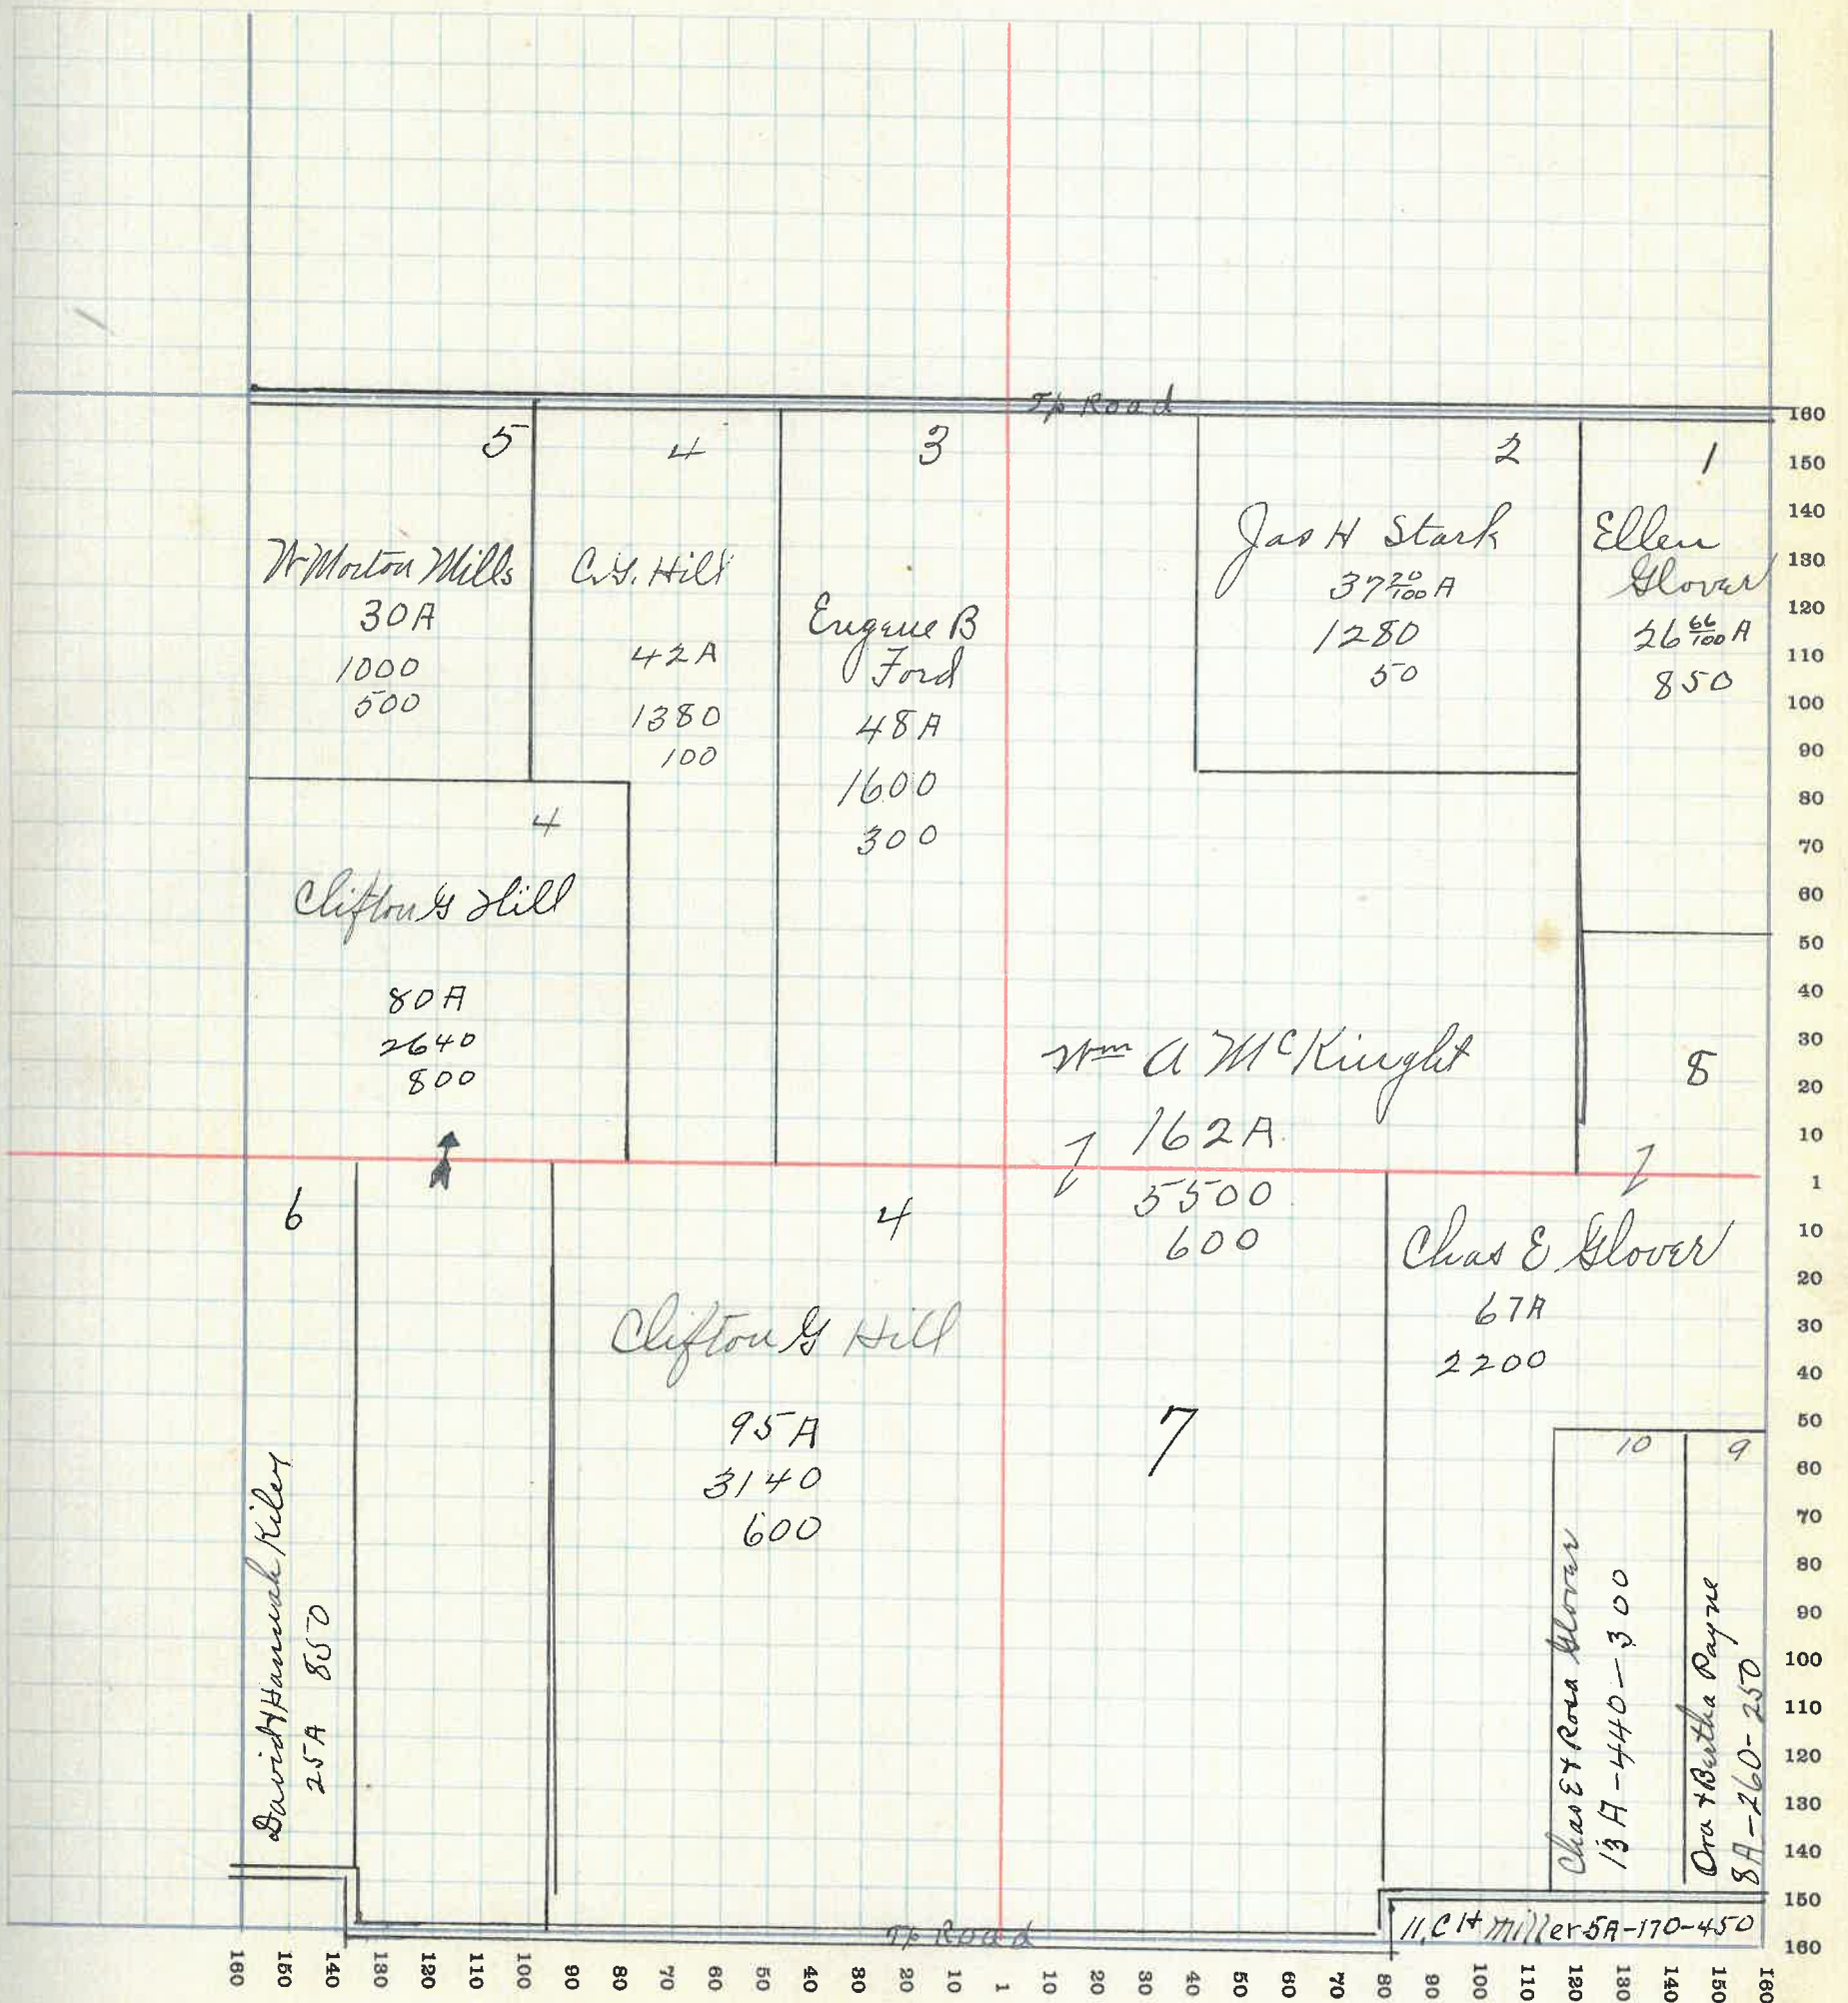 Tp Road
5
W Morton Mills
30A
1000
500
4
C.G. Hill
42A
1380
100
3
Eugene B
Ford
48A
1600
300
2
Jas H Stark
37 20/100 A
1280
50
1
Ellen
Glover
26 66/100 A
850
4
Clifton G Hill
80A
2640
800
Wm A McKinght
162A
5500
600
7
8
Chas E. Glover
67A
2200
6
David & Hannah Kiley
25A 850
4
Clifton G Hill
95A
3140
600
10
Chas E & Rosa Glover
13A-440-300
9
Ora & Bertha Payne
8A-260-250
11, C H Miller 5A-170-450
Tp Road
160
150
140
130
120
110
100
90
80
70
60
50
40
30
20
10
1
10
20
30
40
50
60
70
80
90
100
110
120
130
140
150
160
160 150 140 130 120 110 100 90 80 70 60 50 40 30 20 10 1 10 20 30 40 50 60 70 80 90 100 110 120 130 140 150 160